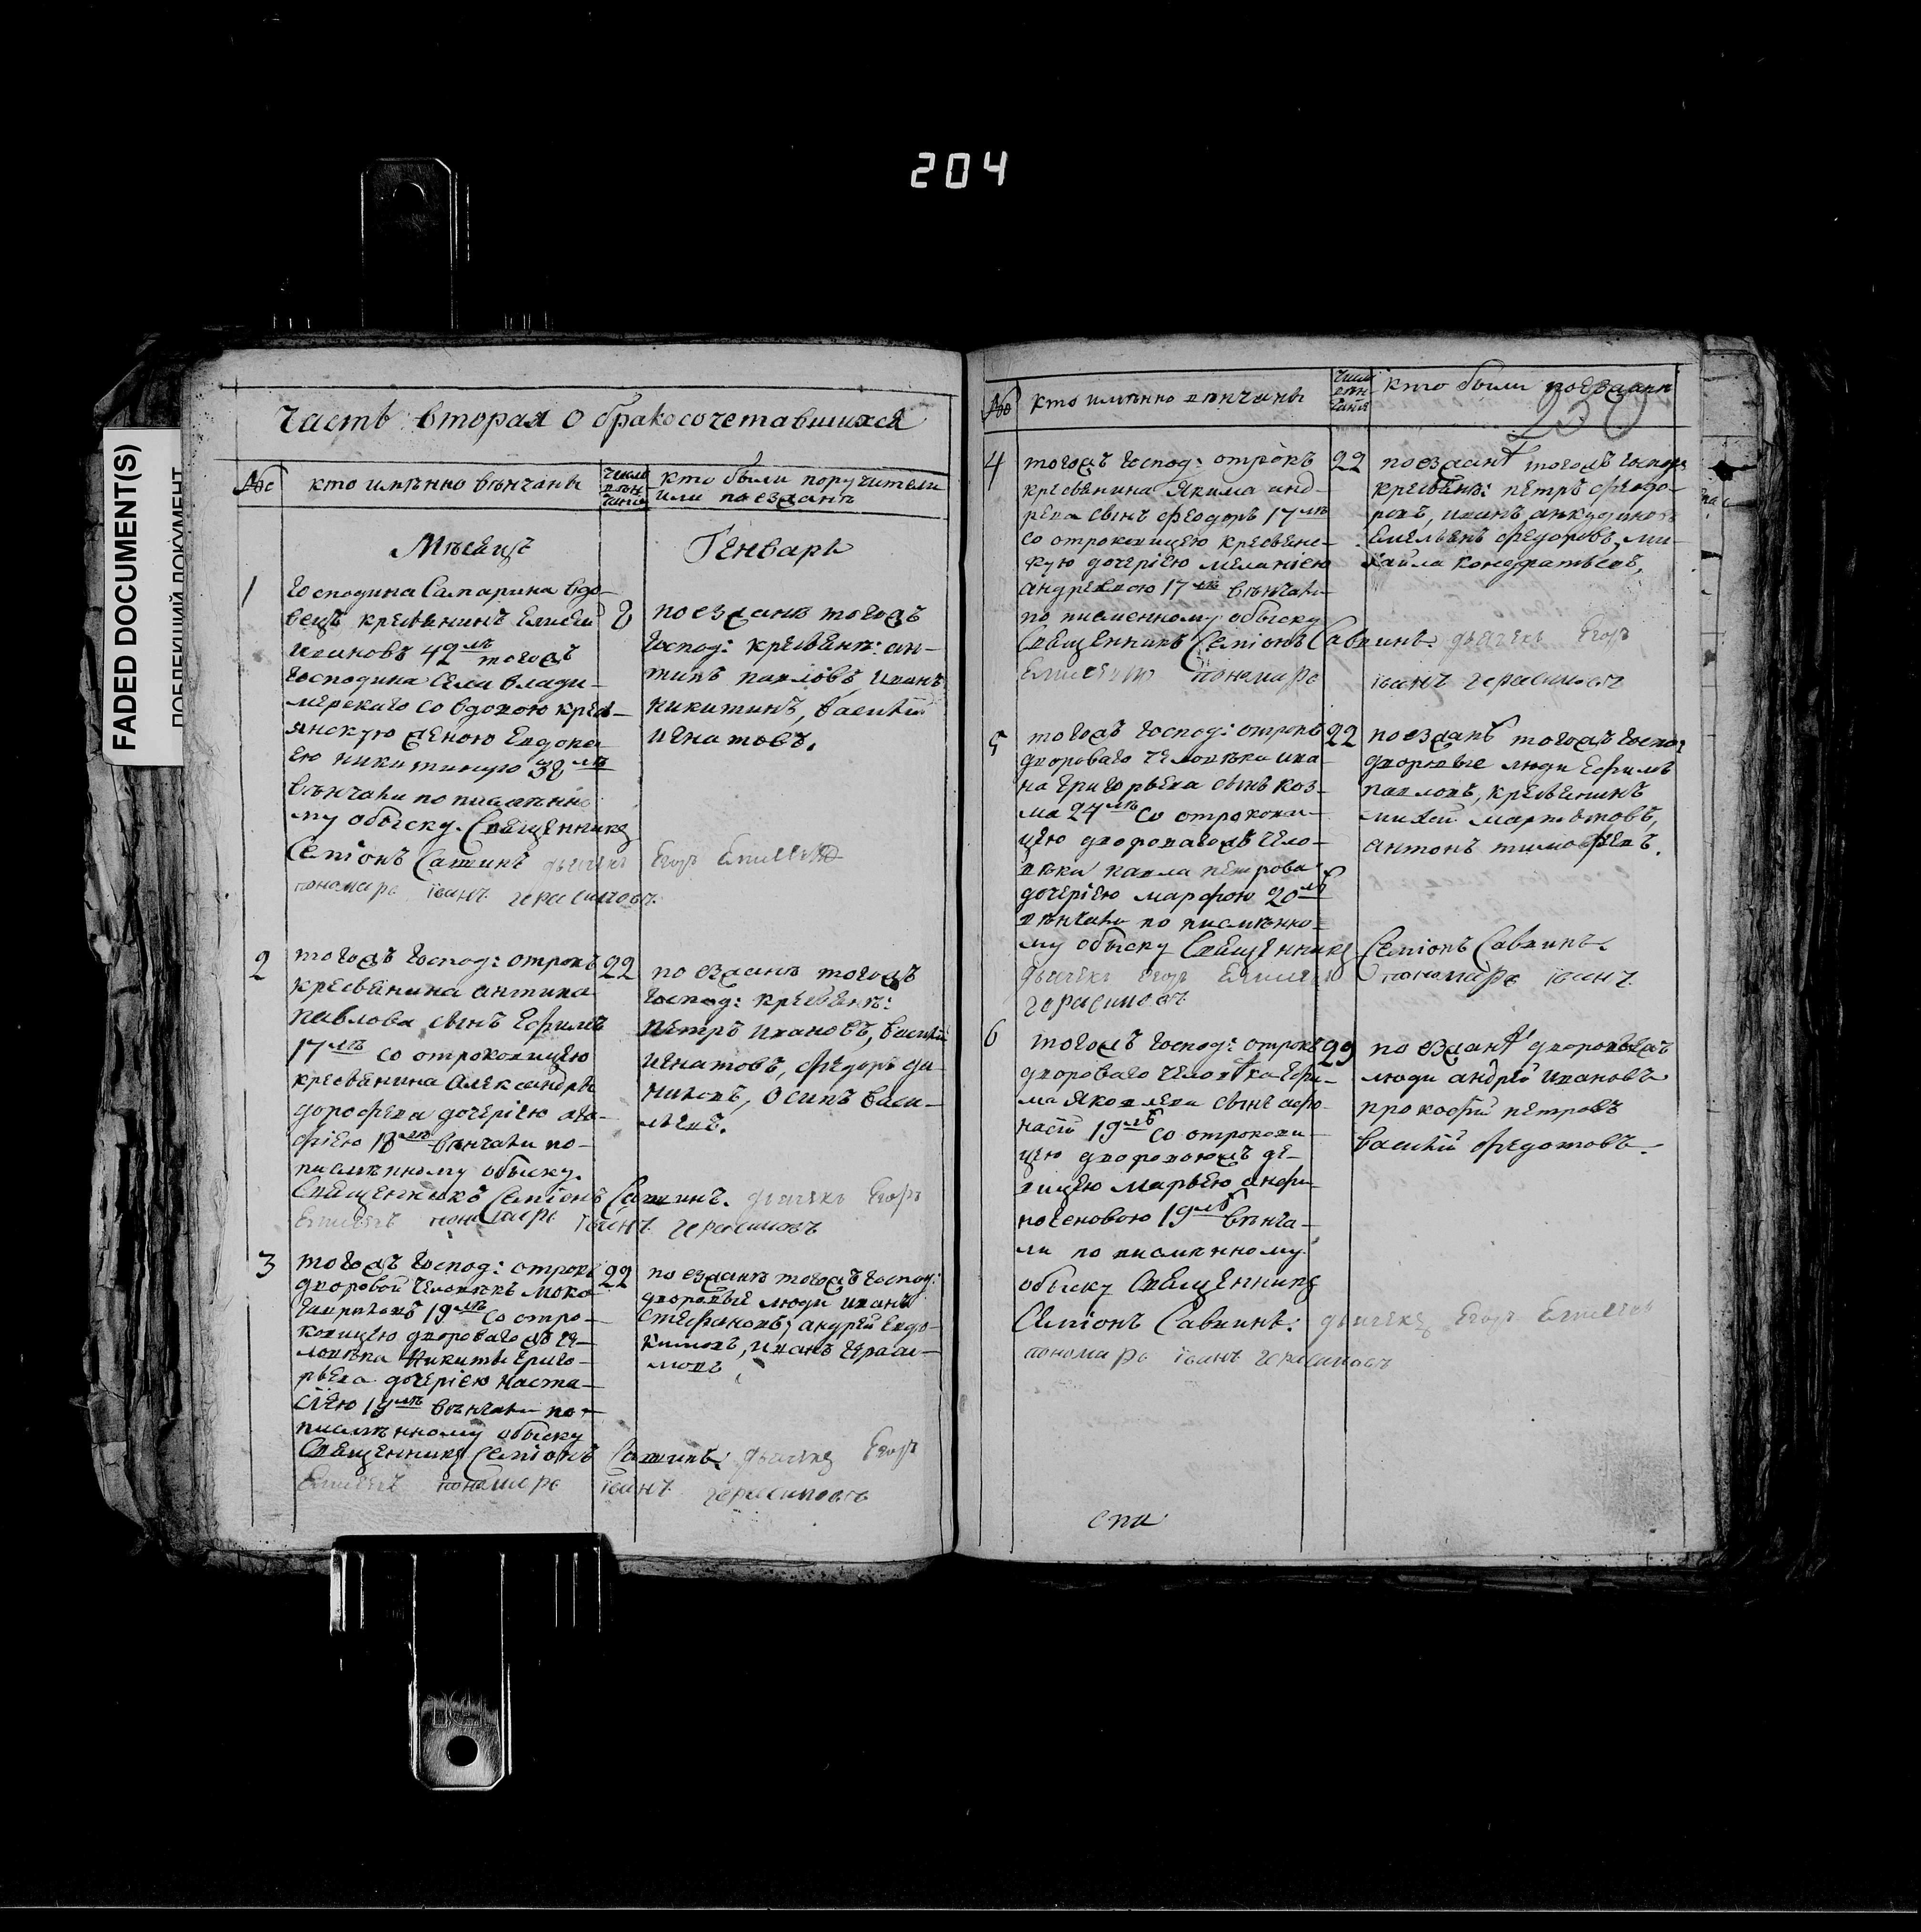 204
FADED DOCUMENT(S)
Часть вторая о бракосочетавшихся
№ кто имѣнно вѣнчаны
число вѣнчания
кто были поручители
или поезданѣ
Мѣсецъ Генварь
1
Господина Самарина вдо-
вецъ кресьянинъ Елисей
Ивановъ 42 лѣ тогожъ
Господина села влади-
мерскаго со вдовою кресь-
янскую женою Евдоке-
ею никитиную 38 лѣ
вѣнчаны по писмѣнно
му обыску. Священникъ
Семіонъ Саввинъ дьячекъ Егоръ
пономарь іванъ герасимовъ
8
поезданѣ тогожъ
господ: кресьянѣ: ан-
типъ павловъ, иванъ
никитинъ, василій
игнатовъ.
2
тогожъ господ: отрокъ
кресьянина антипа
павлова сынъ Ефимъ
17 лѣ со отроковицею
кресьянина Александра
дорофева дочерією
18 лѣ вѣнчаны по-
писмѣнному обыску.
Священникъ Семіонъ Саввинъ. дьячекъ Егоръ
пономарь іванъ герасимовъ
22
поезданѣ тогожъ
господ: кресьянѣ:
петръ ивановъ, василій
игнатовъ, федоръ да-
ниловъ, осипъ васи-
льевъ.
3
тогожъ господ: отрокъ
дворовой человѣкъ
19 лѣ со отро-
ковицею двороваго че-
ловѣка Никиты григо-
рьева дочерією наста-
сіею 19 лѣ вѣнчаны по-
писмѣнному обыску
Священникъ Семіонъ Саввинъ. дьячекъ Егоръ
пономарь іванъ герасимовъ
22
поезданѣ тогожъ господ:
дворовые люди иванъ
Стефановъ, андрей евдо-
кимовъ, иванъ гераси-
мовъ
№ кто имѣнно вѣнчаны
число вѣнчания
кто были поезданѣ
230
4
тогожъ господ: отрокъ
кресьянина Якима анд-
рева сынъ феодоръ 17 лѣ
со отроковицею кресьянс-
кую дочерією меланіею
андревою 17 лѣ вѣнчаны
по писменному обыску
Священникъ Семіонъ Саввинъ. дьячекъ Егоръ
пономарь іванъ герасимовъ
22
поезданѣ тогожъ господ:
кресьянѣ: петръ феодо-
ровъ, иванъ анкудиновъ
Емельянъ федоровъ, ми-
хайла конедратьевъ,
5
тогожъ господ: отрокъ
двороваго человѣка ива-
на григорьева сынъ коз-
ма 24 лѣ со отрокови-
цею дворовагожъ чело-
вѣка павла петрова
дочерією марфою 20 лѣ
вѣнчаны по писмѣнно-
му обыску Священникъ Семіонъ Саввинъ.
дьячекъ Егоръ пономарь іванъ
герасимовъ
22
поезданѣ тогожъ господ:
дворовые люди Ефимъ
павловъ, кресьянинъ
михей мартыновъ,
антонъ тимофѣевъ.
6
тогожъ господ: отрокъ
двороваго человѣка Ефи-
ма Яковлева сынъ афо-
насій 19 лѣ со отрокови-
цею дворовоюжъ дѣ-
вицею марьею анфи-
ногеновою 19 лѣ вѣнча-
ли по писмѣнному
обыску Священникъ
Семіонъ Саввинъ. дьячекъ Егоръ
пономарь іванъ герасимовъ
29
поезданѣ дворовыежъ
люди андрѣй ивановъ
прокофій петровъ
василій федотовъ.